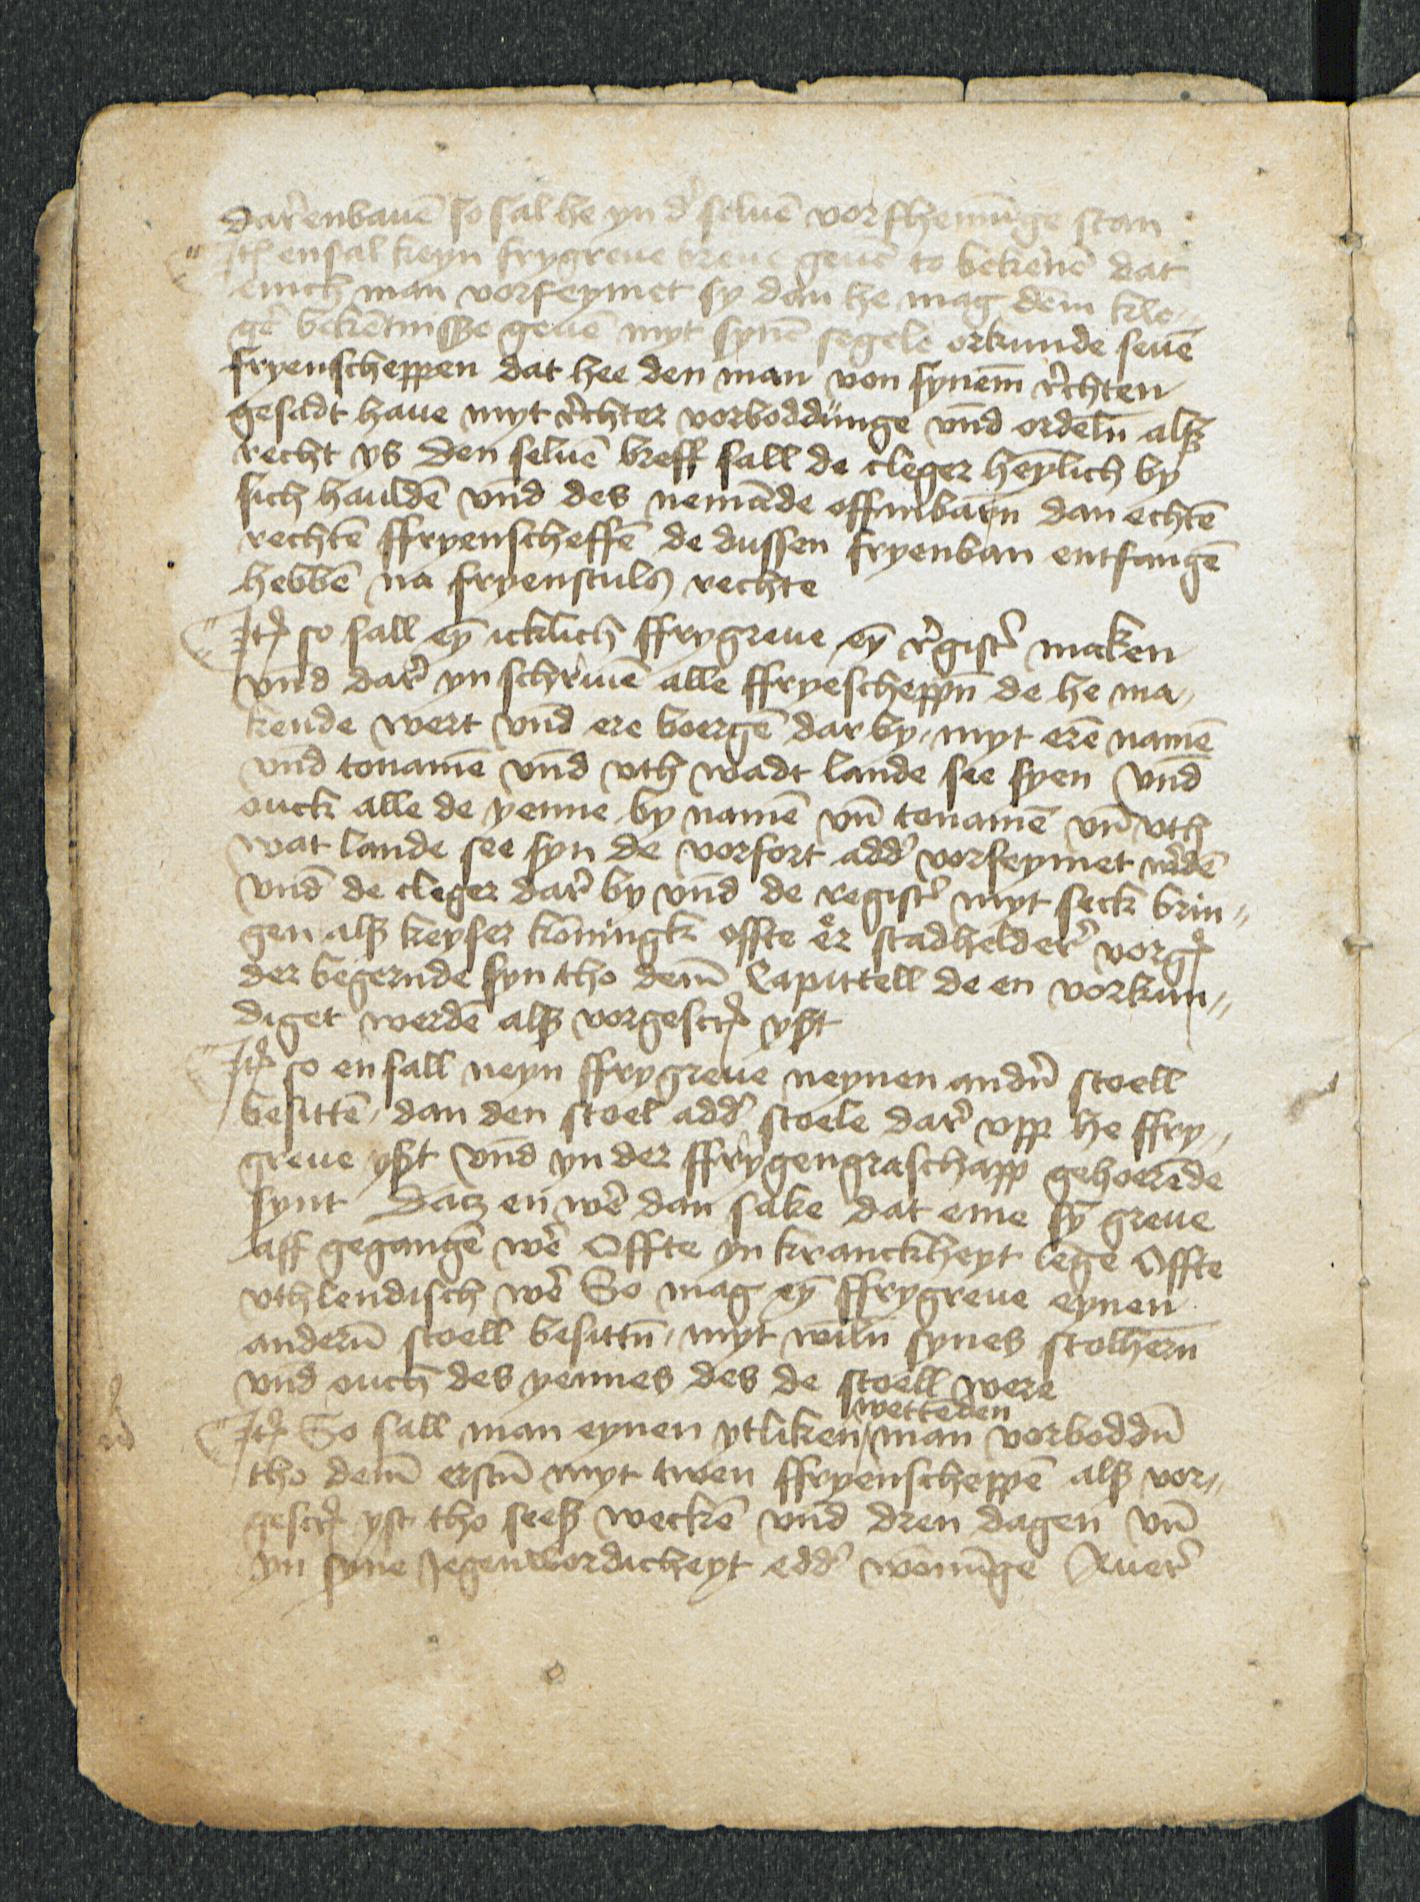 dar enbauē so sal he yn d' seluē vorsfhemīge stan
Itē ensal keyn frygreue breue geuē to bekēnē dat
emch man vorfeymet sy dan he mag dem kle„
gē bekētmsße geuē myt synē segele orkunde seuē
fryenscheppen dat hee den man von synem̄ r'chten
gesadt haue myt r'chter vorboddunge vnd ordeln̄ alß
recht ys den seluē breff sall de cleger heylich by
sich hauldē vnd des nemāde offinbarn̄ dan echtē
rechtē ffryenscheffē de dussen fryenban entfangē
hebbē na fryenstuls rechte
Itē so sall eȳ icklich ffrygreue eȳ r'gist' maken
vnd dar' yn schriuē alle ffryescheppn̄ de he ma„
kende wert vnd ere boergē dar by myt erē namē
vnd tonamē vnd vth wadt lande see syen vnd
ouck alle de yenne by namē vn̄ tonamē vn̄ vth
wat lande see syn de vorfort add' vorfeymet w'dē
vnd de cleger dar' by vnd de regist' myt seck brin„
gen alß keyser koningk offte er stadhelder' vorg'
der begernde syn tho dem̄ Capittell de en vorkun„
diget werdē alß vorgescr' yßt
Itē so en sall neyn ffrygreue neynen andn̄ stoell
besittē dan den stoel add' stoele dar' vpp he ffry„
greue yßt vnd yn der ffrygengraschapp gehoerēde
synt Datz en wē dan sake dat eme sȳ greue
aff gegangē wē Offte yn kranckheyt legē Offte
vthlendisch wē So mag eȳ ffrygreue eynen
andern̄ stoell besittn̄ myt wiln̄ synes stolhern̄
vnd ouch des yennes des de stoell were
wettenden
Itē So sall man eynen ytliken man vorboddn̄
tho dem̄ erstn̄ myt twen ffryenscheppē alß vor„
gescr' yst tho seeß weckē vnd dren dagen vn̄
yn syne Jegenwordicheyt edd' womīge Auer'